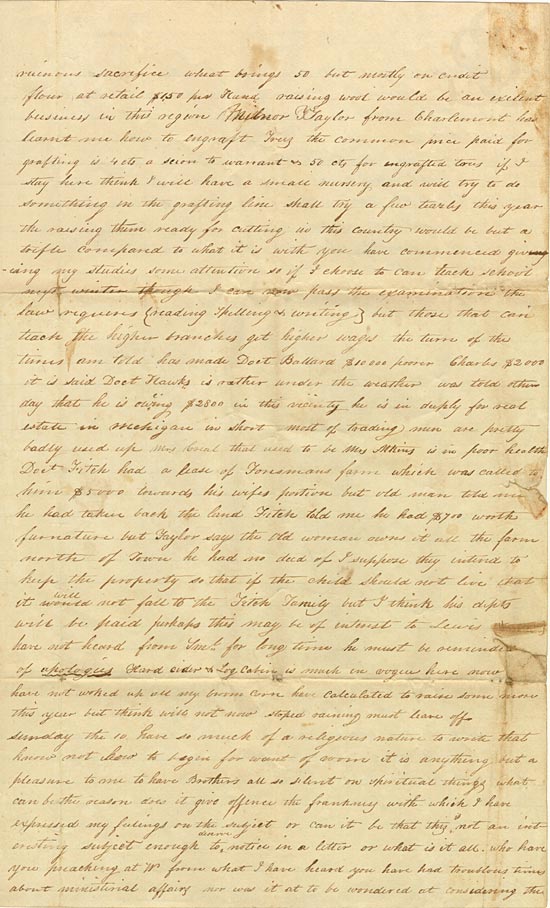 ruinous sacrifice wheat brings 50 but mostly on credit
flour at retail $150 per Hund. raising wool would be an exilent
business in this region Milnor Taylor from Charlemont has
learnt me how to engraft Trees the common price paid for
grafting is 4 cts a scion to warrant & 50 cts for engrafted trees if I
stay here think I will have a small nursery and will try to do
something in the grafting line shall try a few teazles this year
the raising them ready for cutting in this country would be but a
trifle compared to what it is with you have commenced giving
-ing my studies some attention so if I choose to can teach school
next winter though I can now pass the examination the
law requires (reading spelling & writing) but those that can
teach the higher branches get higher wages the turn of the
times am told has made Doct Ballard $10000 poorer Charles $2000
it is said Doct Hawks is rather under the weather was told other
day that he is owing $2800 in this vicinity he is in deeply for real
estate in Michigan in short most of trading men are pretty
badly used up Mrs that used to be Mrs Atkins is in poor health
Doct Fitch had a lease of farm which was called to
him $5000 towards his wifes portion but old man told me
he had taken back the land Fitch told me he had $700 worth
furnature but Taylor says the old woman owns it all the farm
north of Town he had no deed of I suppose they intend to
keep the property so that if the child should not live that
it will not fall to the Fitch Family but I think his depts
will be paid perhaps this may be of interest to Lewis
have not heard from for long time he must be reminded
of apologies Hard cider & Log Cabin is much in vogue here now
have not woked up all my broom corn have calculated to raise some more
this year but think will not now stoped raining must leave off
sunday the 10. have so much of a religious nature to write that
know not how to begin for want of room it is anything but a
pleasure to me to have Brothers all so silent on spiritual things what
can be the reason does it give offence the frankness with which I have
expressed my feelings on the subject or can it be that this is not an int-
eresting subject enough to deserve notice in a letter or what is it all. who have
you preaching at W from what I have heard you have had troublous times
about ministerial affairs nor was it at to be wondered at considering the